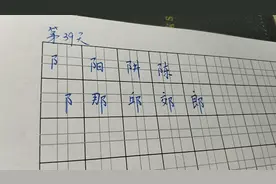 第39天
阝 阳 阱 陈
阝 那 邱 郊 郎